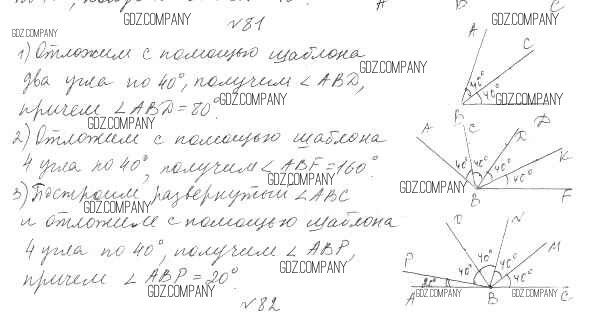 №81
1) Отложим с помощью шаблона
два угла по 40°, получим ∠ABD,
причем ∠ABD=80°.
2) Отложим с помощью шаблона
4 угла по 40°, получим ∠ABF=160°.
3) Построим развернутый ∠ABC
и отложим с помощью шаблона
4 угла по 40°, получим ∠ABP,
причем ∠ABP=20°.
№82
GDZ.COMPANY
GDZ.COMPANY
GDZ.COMPANY
GDZ.COMPANY
GDZ.COMPANY
GDZ.COMPANY
GDZ.COMPANY
GDZ.COMPANY
GDZ.COMPANY
GDZ.COMPANY
GDZ.COMPANY
GDZ.COMPANY
GDZ.COMPANY
GDZ.COMPANY
A B C
A C
40°
40°
B
A C D K
40° 40° 40° 40°
B F
N M
P 40° 40° 40° 40°
20°
A B C